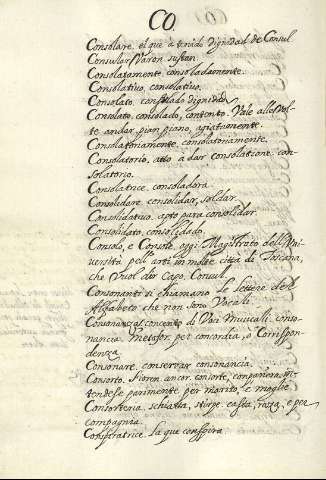 CO
Consolare. el que à tenido dignidad de Consul
Consular Varon
Consolatamente. consoladamente.
Consolativo. consolativo.
Consolato. consolado dignidad
Consolato. consolado, contento. Vale alle vol-
te andar pian piano, agiatamente.
Consolatoriamente. consolatoriamente.
Consolatorio. atto a dar consolatione. con-
solatorio.
Consolatrice. consoladora
Consolidare. consolidar, soldar.
Consolidativo. apto para consolidar.
Consolidato. consolidado.
Consolo, e Console. oggi Magistrato dell Uni-
versità pell' arti in molte città di Toscana,
che Vuol dir Capo. Consul.
Consonanti si chiamano le lettere dell
Alfabeto che non sono Vocali.
Consonanza. concento di Voci musicali. conso-
nancia. metafor. per concordia, ò Corrispon-
denza
Consonare. conservar consonancia.
Consorto. fioren. ancor. consorte, compañero.
tendese parimente per marito, e moglie
Consorteria. schiatta, stirpe. casta, raza, e per
compagnia.
Conspiratrice. la que conspira